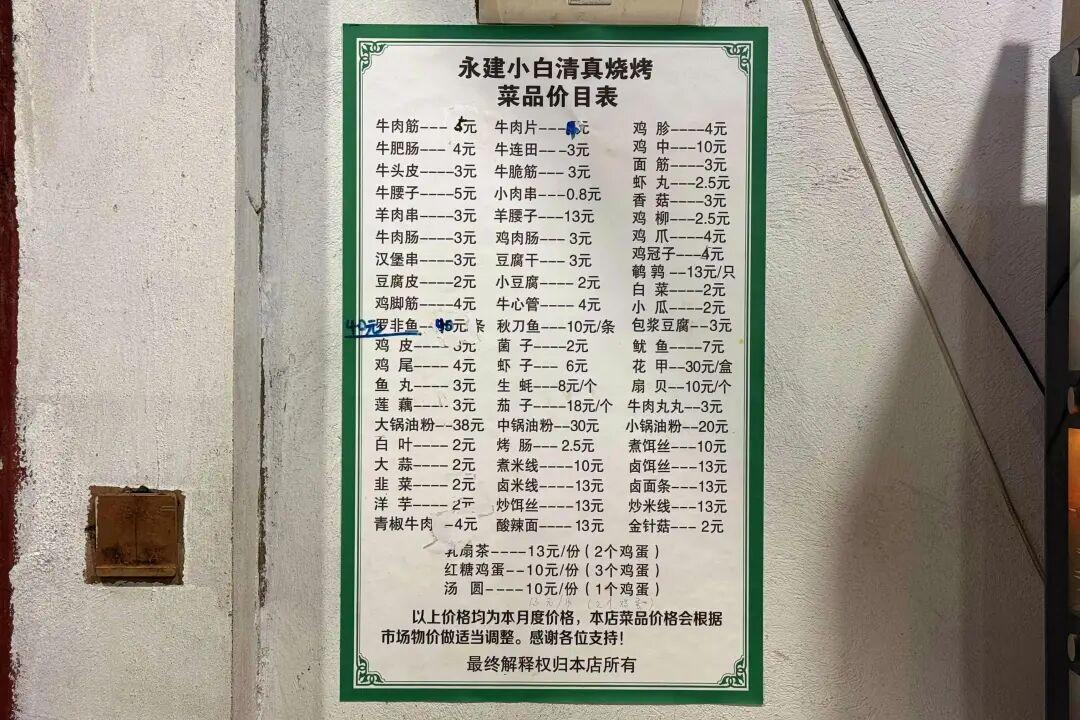 永建小白清真烧烤
菜品价目表
牛肉筋---5元 牛肉片---元 鸡 胗----4元
牛肥肠---4元 牛连田---3元 鸡 中----10元
牛头皮----3元 牛脆筋---3元 面 筋----3元
牛腰子----5元 小肉串---0.8元 虾 丸----2.5元
羊肉串----3元 羊腰子---13元 香 菇----3元
牛肉肠----3元 鸡肉肠---3元 鸡 柳----2.5元
汉堡串----3元 豆腐干---3元 鸡 爪----4元
豆腐皮----2元 小豆腐----2元 鸡冠子---4元
鸡脚筋----4元 牛心管----4元 鹌 鹑--13元/只
罗非鱼--元 条 秋刀鱼---10元/条 白 菜----2元
鸡 皮----3元 菌 子----2元 小 瓜----2元
鸡 尾----4元 虾 子---6元 包浆豆腐--3元
鱼 丸----3元 生 蚝---8元/个 鱿 鱼----7元
莲 藕----3元 茄 子----18元/个 花 甲---30元/盒
大锅油粉--38元 中锅油粉---30元 扇 贝---10元/个
白 叶----2元 烤 肠---2.5元 牛肉丸丸--3元
大 蒜----2元 煮米线----10元 小锅油粉---20元
韭 菜----2元 卤米线----13元 煮饵丝----10元
洋 芋----2元 炒饵丝----13元 卤饵丝----13元
青椒牛肉 -4元 酸辣面----13元 卤面条----13元
炒米线----13元
金针菇---2元
乳扇茶----13元/份（2个鸡蛋）
红糖鸡蛋--10元/份（3个鸡蛋）
汤 圆----10元/份（1个鸡蛋）
以上价格均为本月度价格，本店菜品价格会根据
市场物价做适当调整。感谢各位支持！
最终解释权归本店所有